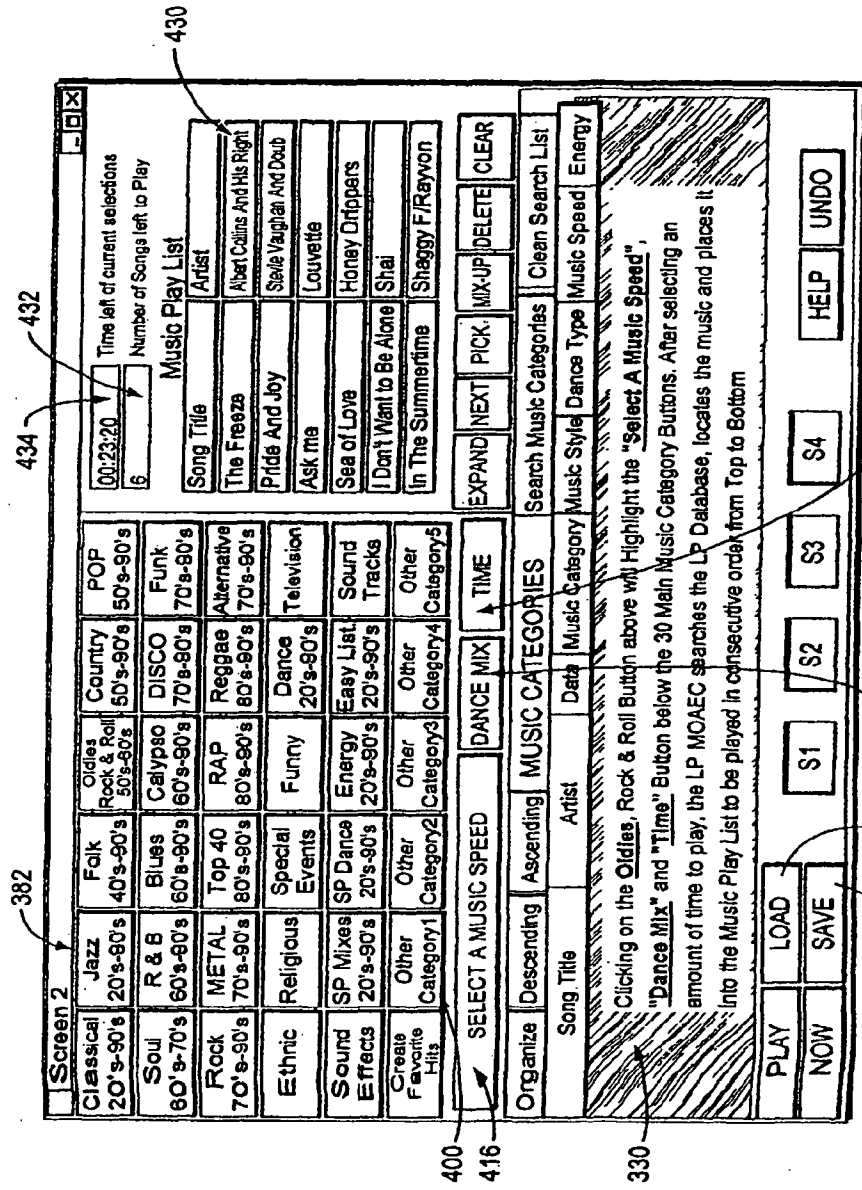 Screen 2
382
434
432
430
Classical 20's-90's
Jazz 20's-90's
Folk 40's-90's
Oldies Rock & Roll 50's-60's
Country 50's-90's
POP 50's-90's
Soul 60's-70's
R & B 60's-90's
Blues 60's-90's
Calypso 60's-90's
DISCO 70's-90's
Funk 70's-90's
Rock 70's-90's
METAL 70's-90's
Top 40 80's-90's
RAP 80's-90's
Reggae 80's-90's
Alternative 70's-90's
Ethnic
Religious
Special Events
Funny
Dance 20's-90's
Television
Sound Effects
SP Mixes 20's-90's
SP Dance 20's-90's
Energy 20's-90's
Easy List. 20's-90's
Sound Tracks
Create Favorite Hits
Other Category1
Other Category2
Other Category3
Other Category4
Other Category5
00:23:20 Time left of current selections
6 Number of Songs left to Play
Music Play List
Song Title Artist
The Freeze Albert Collins And His Right
Pride And Joy Stevie Vaughan And Doub
Ask me Louvette
Sea of Love Honey Drippers
I Don't Want to Be Alone Shai
In The Summertime Shaggy F/Rayvon
400
416
SELECT A MUSIC SPEED DANCE MIX TIME EXPAND NEXT PICK. MIX-UP DELETE CLEAR
Organize Descending Ascending MUSIC CATEGORIES Search Music Categories Clean Search List
Song Title Artist Data Music Category Music Style Dance Type Music Speed Energy
330
Clicking on the Oldies, Rock & Roll Button above will Highlight the "Select A Music Speed",
"Dance Mix" and "Time" Button below the 30 Main Music Category Buttons. After selecting an
amount of time to play, the LP MOAEC searches the LP Database, locates the music and places it
into the Music Play List to be played in consecutive order from Top to Bottom
PLAY LOAD
NOW SAVE
S1 S2 S3 S4 HELP UNDO